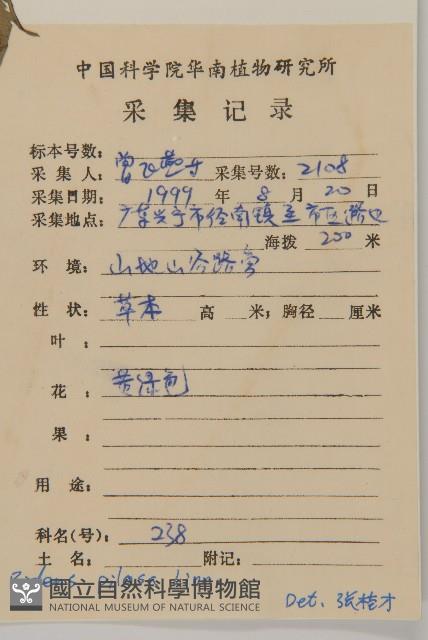 中国科学院华南植物研究所
采集记录
标本号数:
采集人: 曾飞燕 采集号数: 2108
采集日期: 1999 年 8 月 20 日
采集地点: 广东兴宁市径南镇至市区路边
海拨 200 米
环境: 山地山谷路旁
性状: 草本 高 米; 胸径 厘米
叶:
花: 黄绿色
果:
用途:
科名(号): 238
土名: 附记:
Bidens pilosa Linn.
國立自然科學博物館
NATIONAL MUSEUM OF NATURAL SCIENCE
Det. 张桂才